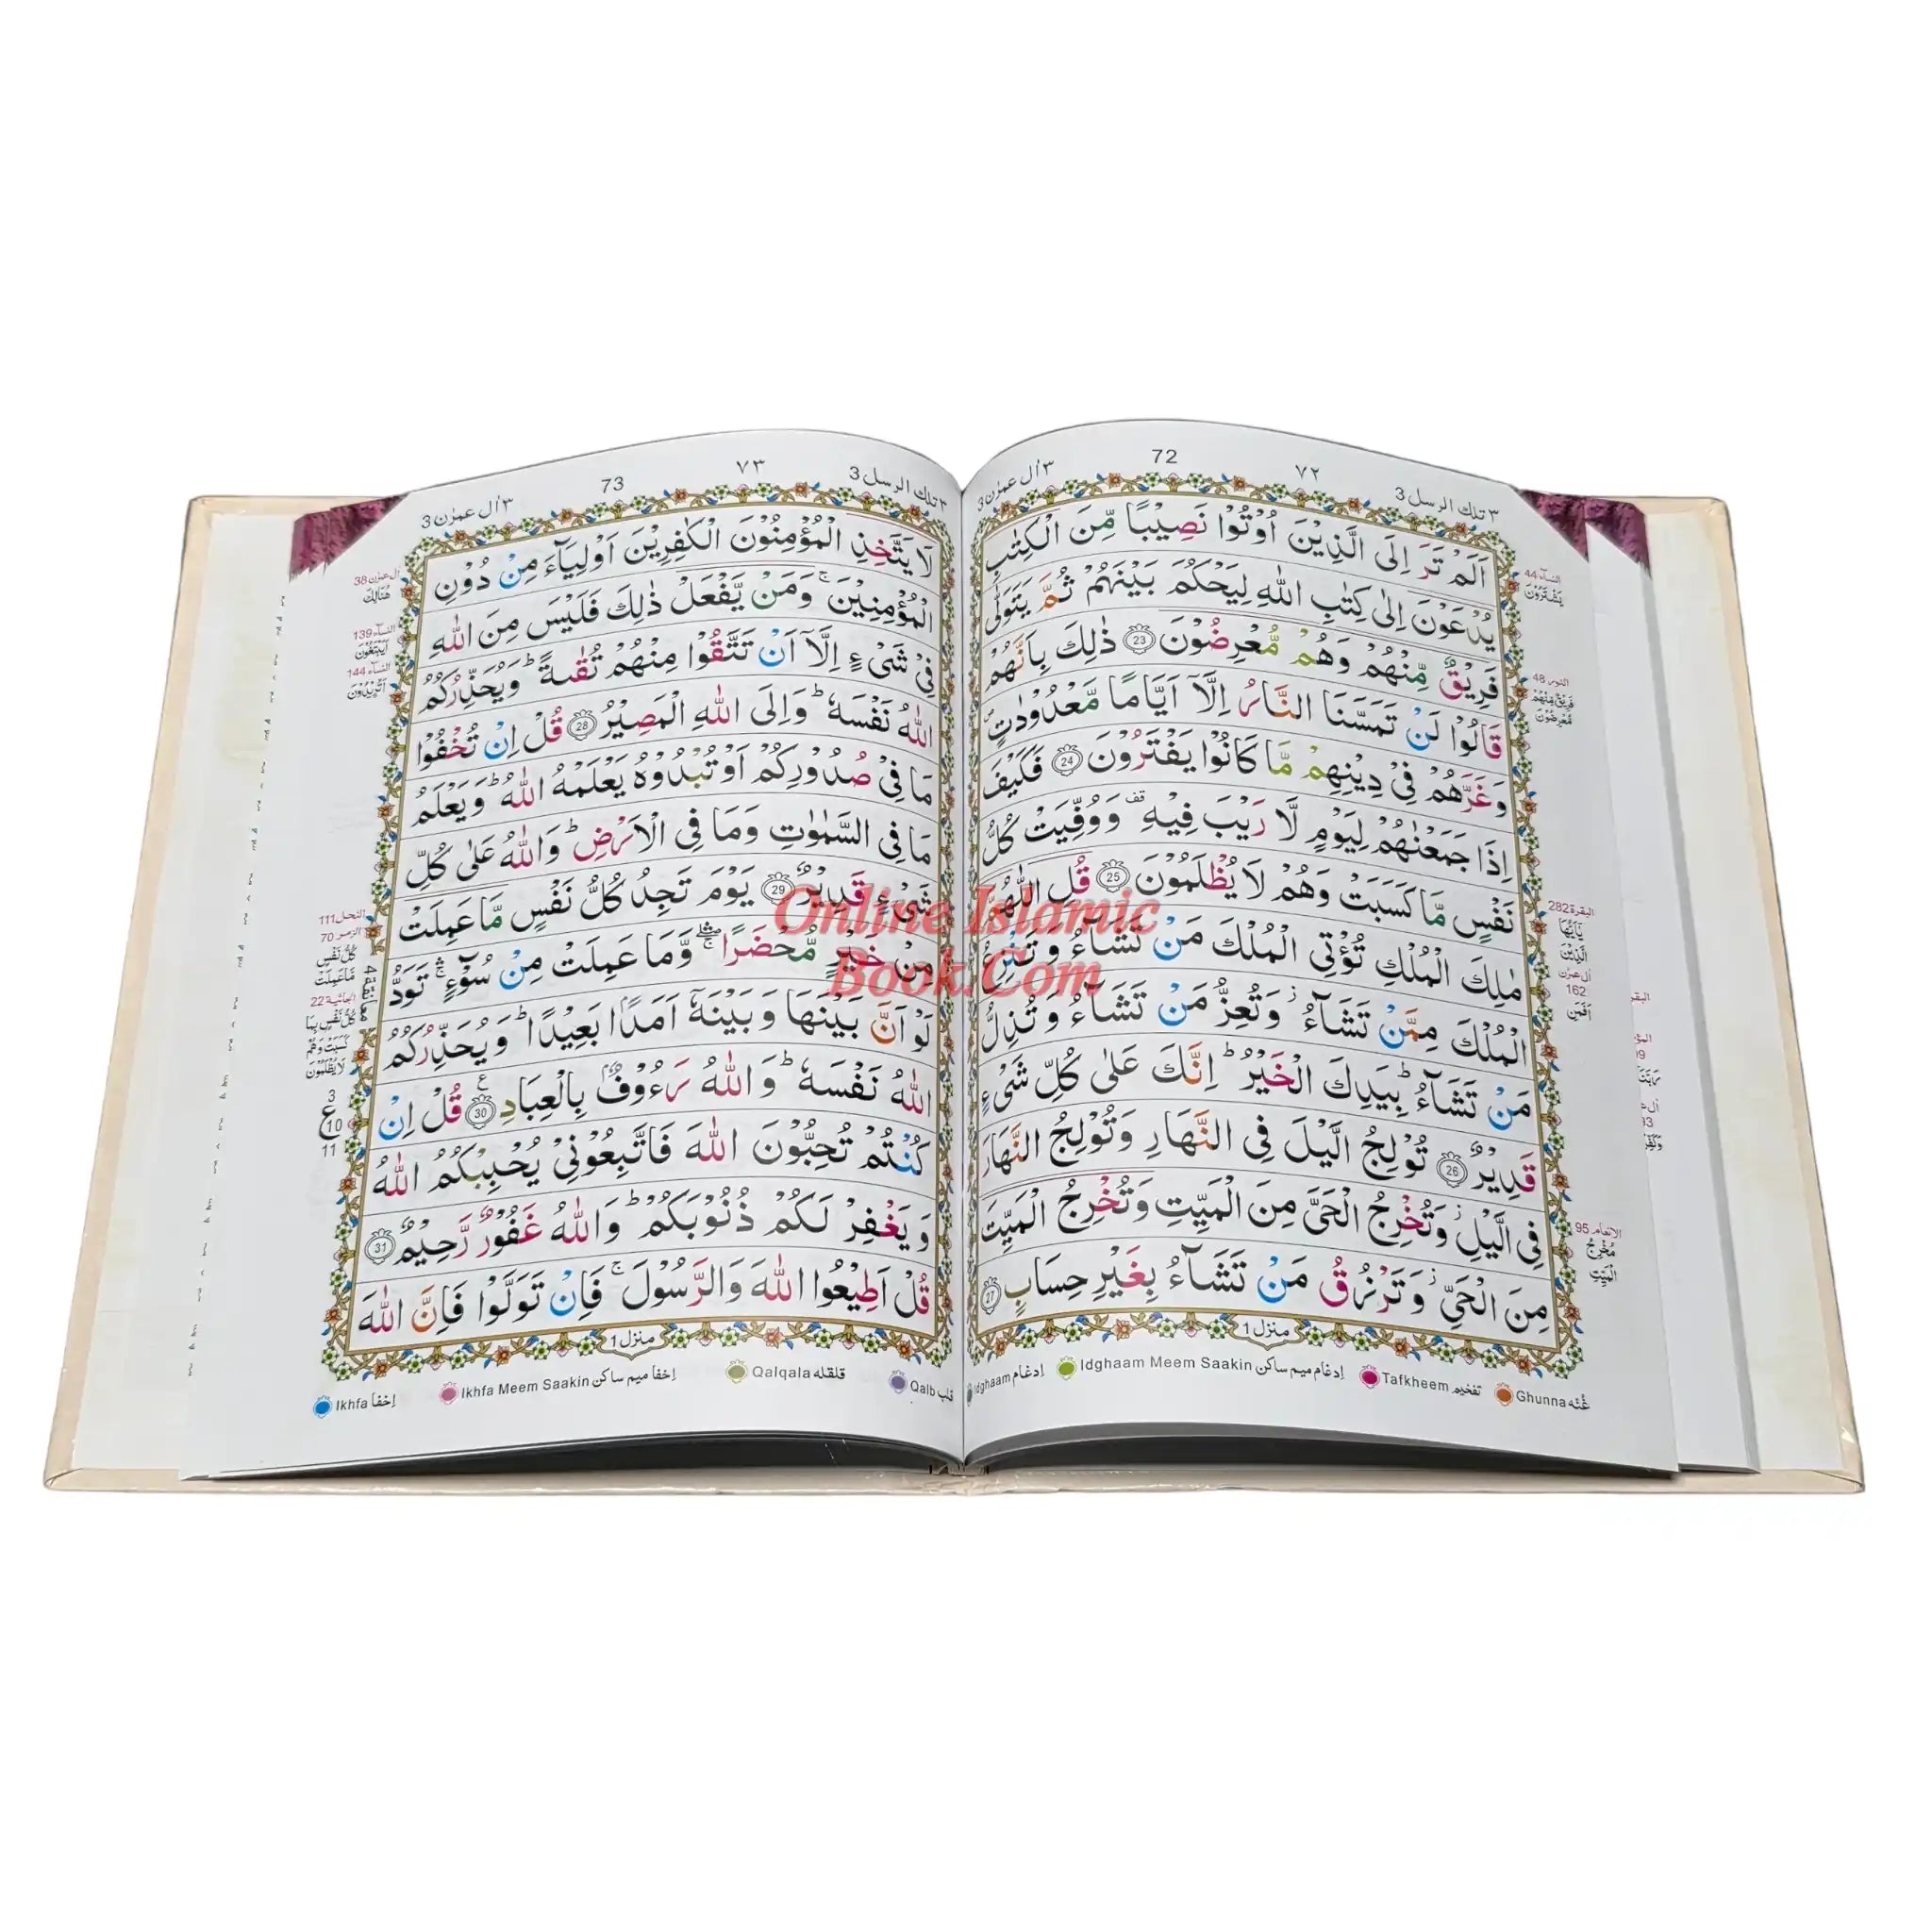 ٣ تلك الرسل 3
٧٢
72
٣ اٰل عمرٰن 3
اَلَمْ تَرَ اِلَى الَّذِيْنَ اُوْتُوْا نَصِيْبًا مِّنَ الْكِتٰبِ
يُدْعَوْنَ اِلٰى كِتٰبِ اللّٰهِ لِيَحْكُمَ بَيْنَهُمْ ثُمَّ يَتَوَلّٰى
فَرِيْقٌ مِّنْهُمْ وَهُمْ مُّعْرِضُوْنَ 23 ذٰلِكَ بِاَنَّهُمْ
قَالُوْا لَنْ تَمَسَّنَا النَّارُ اِلَّآ اَيَّامًا مَّعْدُوْدٰتٍ ۠
وَغَرَّهُمْ فِيْ دِيْنِهِمْ مَّا كَانُوْا يَفْتَرُوْنَ 24 فَكَيْفَ
اِذَا جَمَعْنٰهُمْ لِيَوْمٍ لَّا رَيْبَ فِيْهِ قف وَوُفِّيَتْ كُلُّ
نَفْسٍ مَّا كَسَبَتْ وَهُمْ لَا يُظْلَمُوْنَ 25 قُلِ اللّٰهُمَّ
مٰلِكَ الْمُلْكِ تُؤْتِي الْمُلْكَ مَنْ تَشَآءُ وَتَنْزِعُ
الْمُلْكَ مِمَّنْ تَشَآءُ ز وَتُعِزُّ مَنْ تَشَآءُ وَتُذِلُّ
مَنْ تَشَآءُ ط بِيَدِكَ الْخَيْرُ ط اِنَّكَ عَلٰى كُلِّ شَيْءٍ
قَدِيْرٌ 26 تُوْلِجُ الَّيْلَ فِي النَّهَارِ وَتُوْلِجُ النَّهَارَ
فِي الَّيْلِ ز وَتُخْرِجُ الْحَيَّ مِنَ الْمَيِّتِ وَتُخْرِجُ الْمَيِّتَ
مِنَ الْحَيِّ ز وَتَرْزُقُ مَنْ تَشَآءُ بِغَيْرِ حِسَابٍ 27
منزل 1
النسآء 44
يَشْتَرُوْنَ
النور 48
فَرِيْقٌ مِّنْهُمْ
مُّعْرِضُوْنَ
البقرة 282
يٰٓاَيُّهَا
الَّذِيْنَ
اٰل عمرٰن
162
اَفَمَنِ
الانعام 95
مُخْرِجُ
الْمَيِّتِ
Ghunna غُنّه
Tafkheem تفخيم
Idghaam Meem Saakin إدغام ميم ساكن
Idghaam إدغام
٣ تلك الرسل 3
٧٣
73
٣ اٰل عمرٰن 3
لَا يَتَّخِذِ الْمُؤْمِنُوْنَ الْكٰفِرِيْنَ اَوْلِيَآءَ مِنْ دُوْنِ
الْمُؤْمِنِيْنَ ج وَمَنْ يَّفْعَلْ ذٰلِكَ فَلَيْسَ مِنَ اللّٰهِ
فِيْ شَيْءٍ اِلَّآ اَنْ تَتَّقُوْا مِنْهُمْ تُقٰىةً ط وَيُحَذِّرُكُمُ
اللّٰهُ نَفْسَهٗ ط وَاِلَى اللّٰهِ الْمَصِيْرُ 28 قُلْ اِنْ تُخْفُوْا
مَا فِيْ صُدُوْرِكُمْ اَوْ تُبْدُوْهُ يَعْلَمْهُ اللّٰهُ ط وَيَعْلَمُ
مَا فِي السَّمٰوٰتِ وَمَا فِي الْاَرْضِ ط وَاللّٰهُ عَلٰى كُلِّ
شَيْءٍ قَدِيْرٌ 29 يَوْمَ تَجِدُ كُلُّ نَفْسٍ مَّا عَمِلَتْ
مِنْ خَيْرٍ مُّحْضَرًا وَّمَا عَمِلَتْ مِنْ سُوْٓءٍ تَوَدُّ
لَوْ اَنَّ بَيْنَهَا وَبَيْنَهٗٓ اَمَدًا بَعِيْدًا ط وَيُحَذِّرُكُمُ
اللّٰهُ نَفْسَهٗ ط وَاللّٰهُ رَءُوْفٌ بِالْعِبَادِ 30 قُلْ اِنْ
كُنْتُمْ تُحِبُّوْنَ اللّٰهَ فَاتَّبِعُوْنِيْ يُحْبِبْكُمُ اللّٰهُ
وَيَغْفِرْ لَكُمْ ذُنُوْبَكُمْ ط وَاللّٰهُ غَفُوْرٌ رَّحِيْمٌ 31
قُلْ اَطِيْعُوا اللّٰهَ وَالرَّسُوْلَ ج فَاِنْ تَوَلَّوْا فَاِنَّ اللّٰهَ
منزل 1
اٰل عمرٰن 38
هُنَالِكَ
النسآء 139
اَيَبْتَغُوْنَ
النسآء 144
اَتُرِيْدُوْنَ
النحل 111
الزمر 70
كُلُّ نَفْسٍ
مَّا عَمِلَتْ
الجاثية 22
كُلُّ نَفْسٍۭ بِمَا
كَسَبَتْ وَهُمْ
لَا يُظْلَمُوْنَ
3
ع
10
11
Qalb قلب
Qalqala قلقله
Ikhfa Meem Saakin إخفأ ميم ساكن
Ikhfa إخفأ
Online Islamic
Book.Com